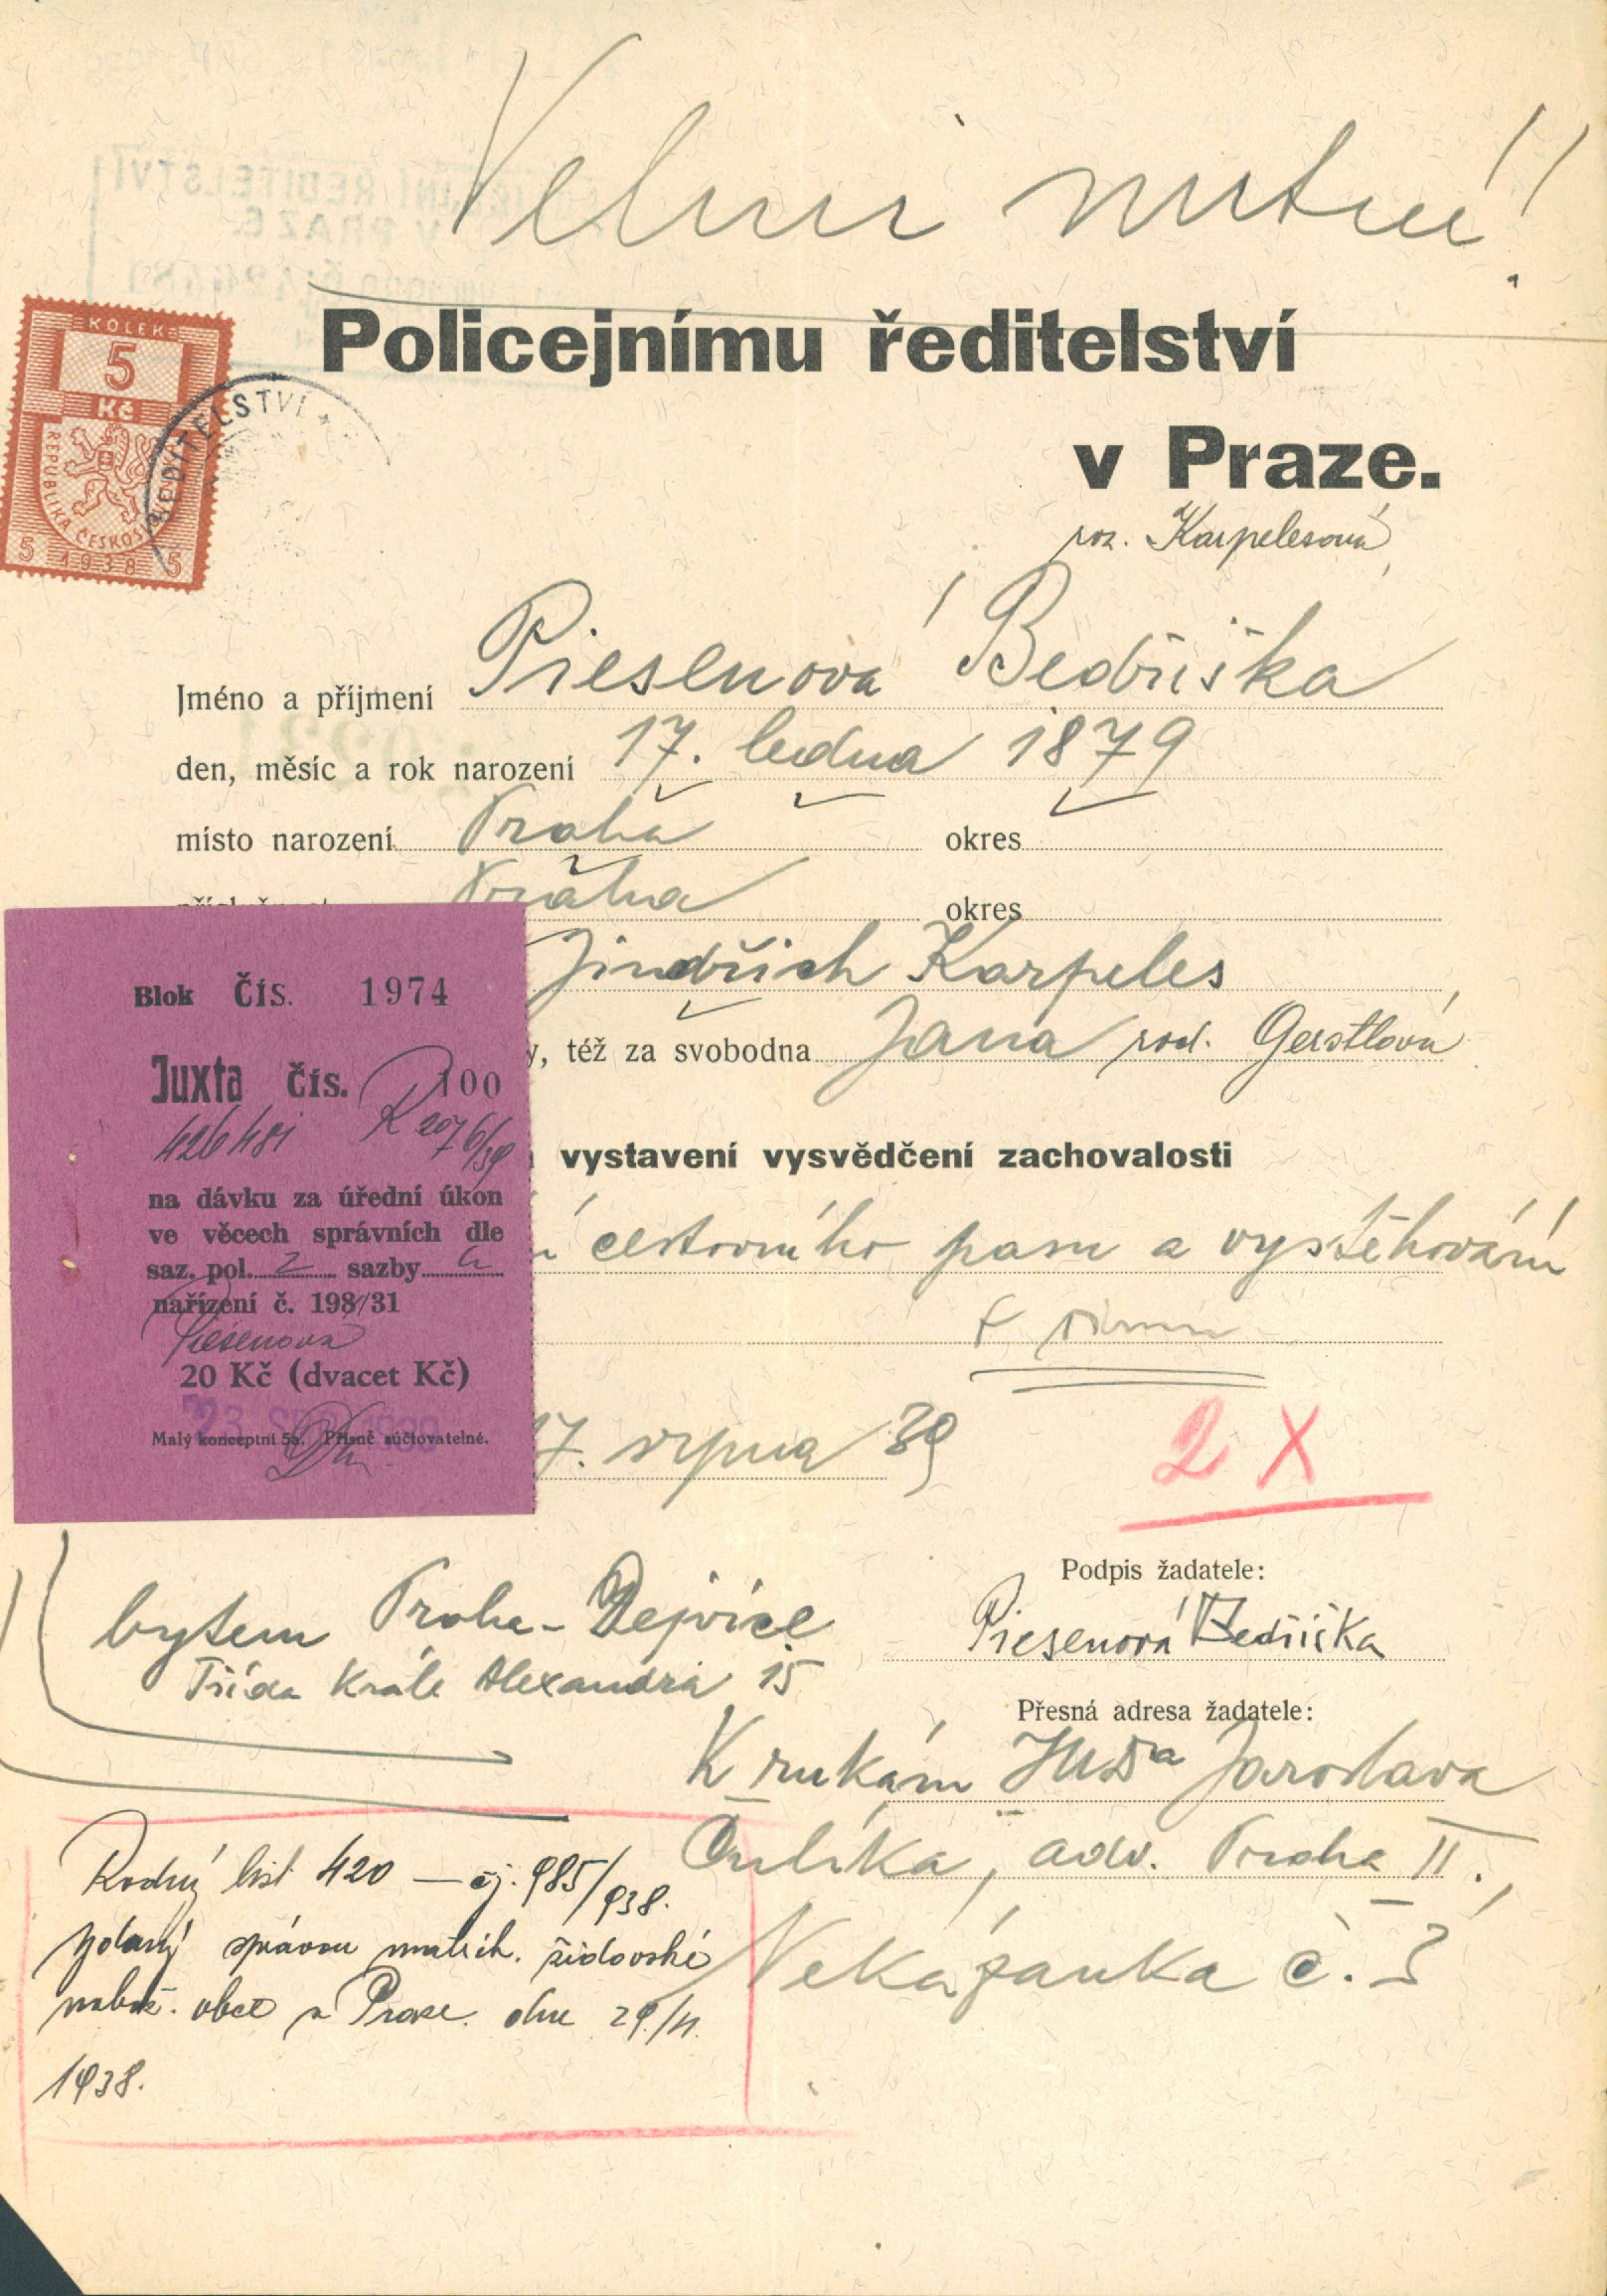 Velmi nutné!!
KOLEK
5
Kč
REPUBLIKA ČESKOS
5 1938 5
ŘEDITELSTVÍ
Policejnímu ředitelství
v Praze.
roz. Karpelesová
Jméno a příjmení Piesenová Bedřiška
den, měsíc a rok narození 17. ledna 1879
místo narození Praha okres
Praha okres
Jindřich Karpeles
, též za svobodna Jana rod. Gerstlová
vystavení vysvědčení zachovalosti
cestovního pasu a vystěhování
17. srpna 39
2 X
Blok Čís. 1974
Juxta čís. 100
426481 K 2076/39
na dávku za úřední úkon
ve věcech správních dle
saz. pol. 2 sazby
nařízení č. 198/31
Piesenová
20 Kč (dvacet Kč)
23 1939
Malý konceptní 5a. Přísně súčtovatelné.
bytem Praha-Dejvice
Třída Krále Alexandra 15
Podpis žadatele:
Piesenová Bedřiška
Přesná adresa žadatele:
K rukám JUDra Jaroslava
adv. Praha II.,
Nekázanka č. 3
Rodný list 420 — čj. 985/938.
vydaný správou matrik. židovské
nábož. obce v Praze dne 29./11.
1938.